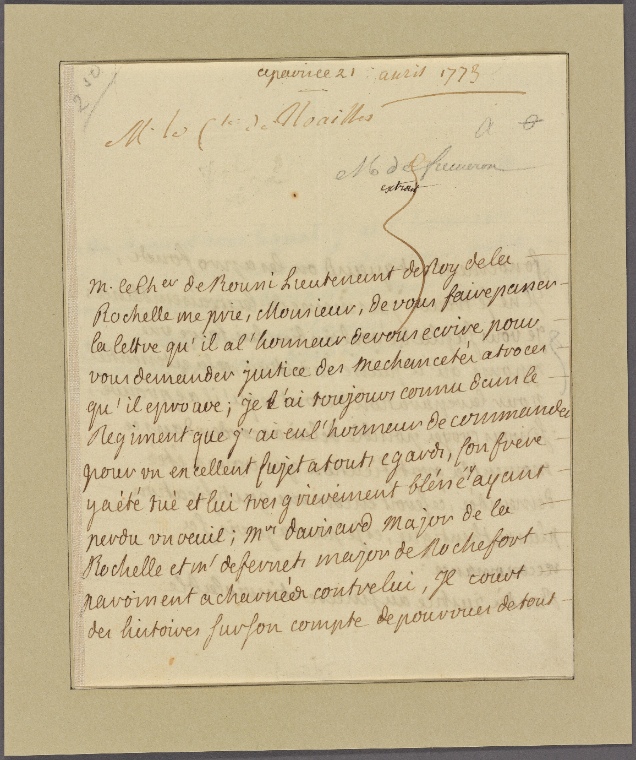 230
a paris ce 21 avril 1773
M. le Cte de Noailles
M. de
extrait
M. le Cher de Rouni Lieutenant de Roy de la
Rochelle me prie, Monsieur, de vous faire passer
la lettre qu'il a l'honneur de vous ecrire pour
vous demander justice des mechancetés atroces
qu'il eprouve; je l'ai toujours connu dans le
Regiment que j'ai eu l'honneur de commander
pour un excellent sujet a touts egards, son frere
y a été tué et lui tres grièvement blessé y ayant
perdu un oeuil; Mrs davisard major de la
Rochelle et mr defernets major de Rochefort
paroissent acharnées contre lui, Il court
des histoires sur son compte depourvues de tout